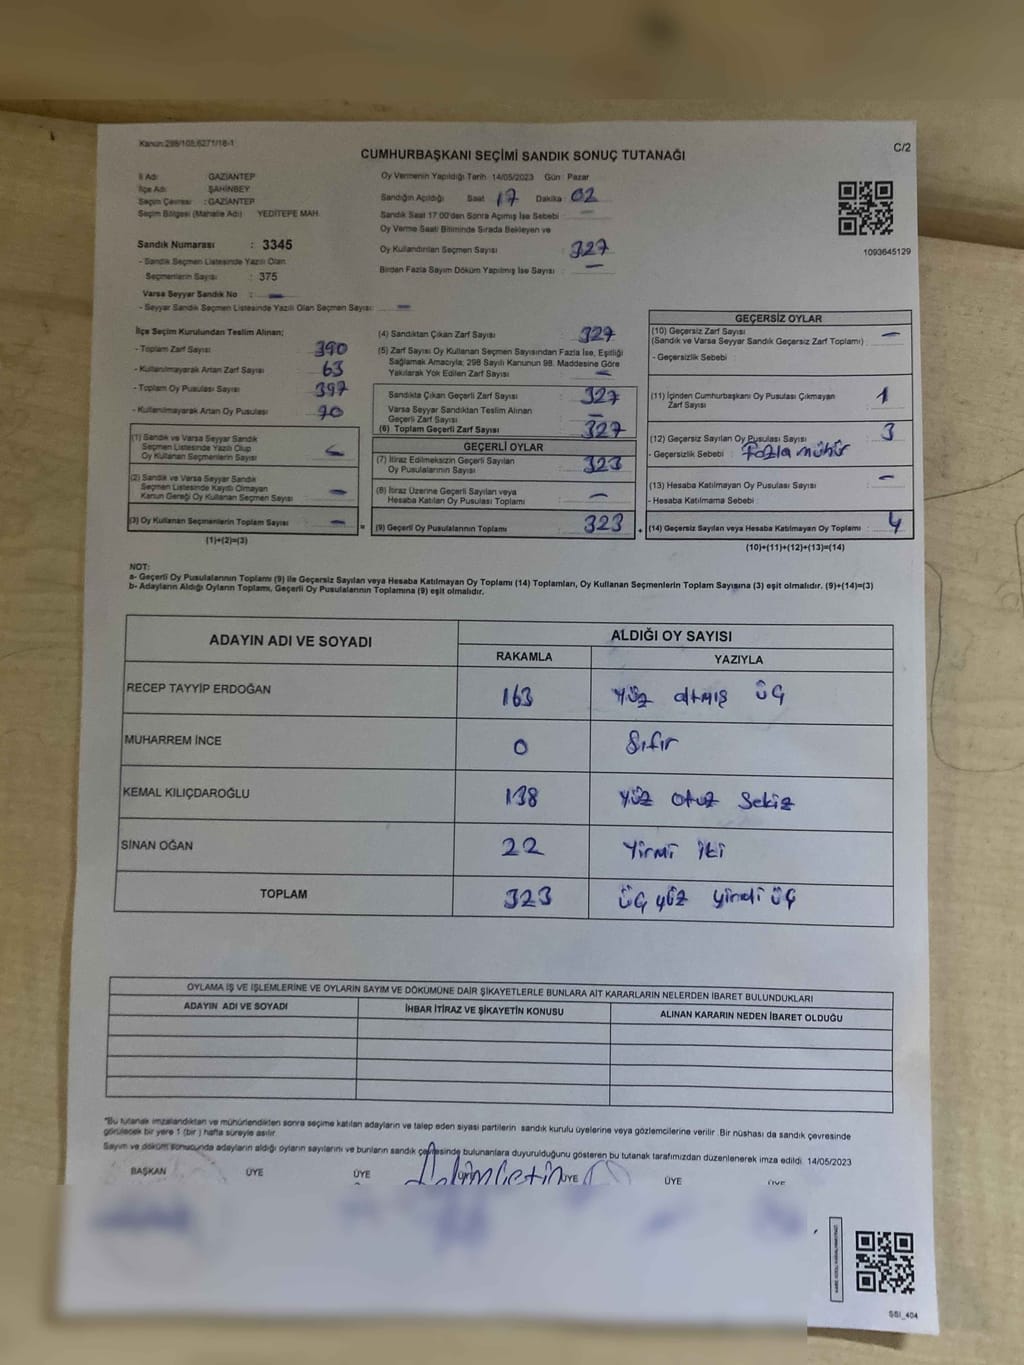 Kanun:298/105,6271/18-1
C/2
CUMHURBAŞKANI SEÇİMİ SANDIK SONUÇ TUTANAĞI
İl Adı: GAZİANTEP
İlçe Adı: ŞAHİNBEY
Seçim Çevresi : GAZİANTEP
Seçim Bölgesi (Mahalle Adı) YEDİTEPE MAH.
Sandık Numarası : 3345
- Sandık Seçmen Listesinde Yazılı Olan
Seçmenlerin Sayısı : 375
Varsa Seyyar Sandık No : -
- Seyyar Sandık Seçmen Listesinde Yazılı Olan Seçmen Sayısı: -
Oy Vermenin Yapıldığı Tarih 14/05/2023 Gün : Pazar
Sandığın Açıldığı Saat 17 Dakika 02
Sandık Saat 17.00'den Sonra Açımış İse Sebebi : -
Oy Verme Saati Bitiminde Sırada Bekleyen ve
Oy Kullandırılan Seçmen Sayısı : 327
Birden Fazla Sayım Döküm Yapılmış İse Sayısı : -
1093645129
İlçe Seçim Kurulundan Teslim Alınan;
- Toplam Zarf Sayısı 390
- Kullanılmayarak Artan Zarf Sayısı 63
- Toplam Oy Pusulası Sayısı 397
- Kullanılmayarak Artan Oy Pusulası 70
(1) Sandık ve Varsa Seyyar Sandık
Seçmen Listesinde Yazılı Olup
Oy Kullanan Seçmenlerin Sayısı
(2) Sandık ve Varsa Seyyar Sandık
Seçmen Listesinde Kayıtlı Olmayan
Kanun Gereği Oy Kullanan Seçmen Sayısı -
(3) Oy Kullanan Seçmenlerin Toplam Sayısı -
(1)+(2)=(3)
(4) Sandıktan Çıkan Zarf Sayısı : 327
(5) Zarf Sayısı Oy Kullanan Seçmen Sayısından Fazla İse, Eşitliği
Sağlamak Amacıyla; 298 Sayılı Kanunun 98. Maddesine Göre
Yakılarak Yok Edilen Zarf Sayısı : -
Sandıkta Çıkan Geçerli Zarf Sayısı : 327
Varsa Seyyar Sandıktan Teslim Alınan
Geçerli Zarf Sayısı : -
(6) Toplam Geçerli Zarf Sayısı : 327
GEÇERLİ OYLAR
(7) İtiraz Edilmeksizin Geçerli Sayılan
Oy Pusulalarının Sayısı : 323
(8) İtiraz Üzerine Geçerli Sayılan veya
Hesaba Katılan Oy Pusulası Toplamı : -
(9) Geçerli Oy Pusulalarının Toplamı : 323
GEÇERSİZ OYLAR
(10) Geçersiz Zarf Sayısı -
(Sandık ve Varsa Seyyar Sandık Geçersiz Zarf Toplamı)
- Geçersizlik Sebebi :
(11) İçinden Cumhurbaşkanı Oy Pusulası Çıkmayan
Zarf Sayısı : 1
(12) Geçersiz Sayılan Oy Pusulası Sayısı : 3
- Geçersizlik Sebebi : Fazla mühür
(13) Hesaba Katılmayan Oy Pusulası Sayısı : -
- Hesaba Katılmama Sebebi :
(14) Geçersiz Sayılan veya Hesaba Katılmayan Oy Toplamı : 4
(10)+(11)+(12)+(13)=(14)
NOT:
a- Geçerli Oy Pusulalarının Toplamı (9) ile Geçersiz Sayılan veya Hesaba Katılmayan Oy Toplamı (14) Toplamları, Oy Kullanan Seçmenlerin Toplam Sayısına (3) eşit olmalıdır. (9)+(14)=(3)
b- Adayların Aldığı Oyların Toplamı, Geçerli Oy Pusulalarının Toplamına (9) eşit olmalıdır.
ADAYIN ADI VE SOYADI
ALDIĞI OY SAYISI
RAKAMLA YAZIYLA
RECEP TAYYİP ERDOĞAN 163 Yüz altmış üç
MUHARREM İNCE 0 Sıfır
KEMAL KILIÇDAROĞLU 138 Yüz otuz sekiz
SİNAN OĞAN 22 Yirmi iki
TOPLAM 323 üç yüz yirmi üç
OYLAMA İŞ VE İŞLEMLERİNE VE OYLARIN SAYIM VE DÖKÜMÜNE DAİR ŞİKAYETLERLE BUNLARA AİT KARARLARIN NELERDEN İBARET BULUNDUKLARI
ADAYIN ADI VE SOYADI İHBAR İTİRAZ VE ŞİKAYETİN KONUSU ALINAN KARARIN NEDEN İBARET OLDUĞU
*Bu tutanak imzalandıktan ve mühürlendikten sonra seçime katılan adayların ve talep eden siyasi partilerin sandık kurulu üyelerine veya gözlemcilerine verilir. Bir nüshası da sandık çevresinde
görülecek bir yere 1 (bir ) hafta süreyle asılır.
Sayım ve döküm sonucunda adayların aldığı oyların sayılarını ve bunların sandık çevresinde bulunanlara duyurulduğunu gösteren bu tutanak tarafımızdan düzenlenerek imza edildi. 14/05/2023
BAŞKAN ÜYE ÜYE ÜYE ÜYE ÜYE ÜYE
SSI_404